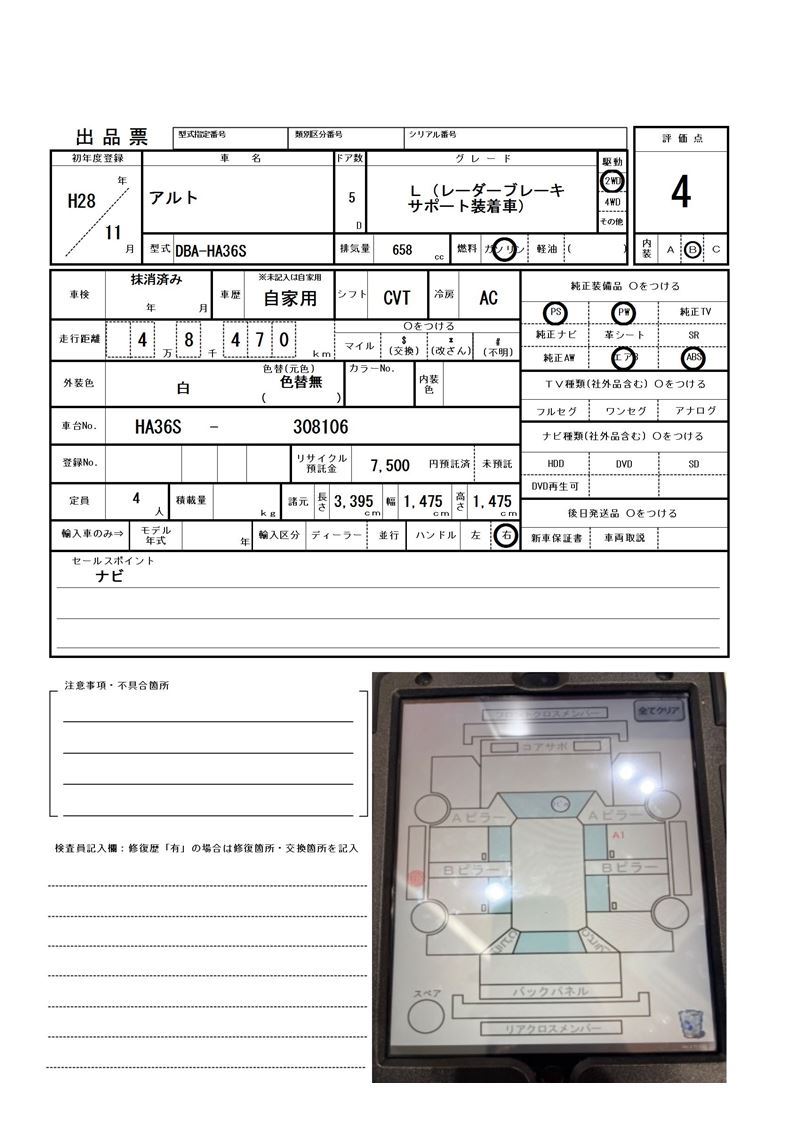 出品票 型式指定番号 類別区分番号 シリアル番号 評価点
初年度登録 車名 ドア数 グレード 駆動
H28 年 11 月 アルト 5 D L（レーダーブレーキサポート装着車） 2WD 4WD その他 4
型式 DBA-HA36S 排気量 658 cc 燃料 ガソリン 軽油 ( ) 内装 A B C
車検 抹消済み 年 月 車歴 ※未記入は自家用 自家用 シフト CVT 冷房 AC 純正装備品 〇をつける
PS PW 純正TV
走行距離 4 万 8 千 4 7 0 km 〇をつける マイル $ (交換) * (改ざん) # (不明) 純正ナビ 革シート SR
純正AW エアB ABS
外装色 白 色替(元色) 色替無 ( ) カラーNo. 内装色 TV種類(社外品含む) 〇をつける
フルセグ ワンセグ アナログ
車台No. HA36S - 308106 ナビ種類(社外品含む) 〇をつける
登録No. リサイクル預託金 7,500 円預託済 未預託 HDD DVD SD
DVD再生可
定員 4 人 積載量 kg 諸元 長さ 3,395 cm 幅 1,475 cm 高さ 1,475 cm 後日発送品 〇をつける
輸入車のみ⇒ モデル年式 年 輸入区分 ディーラー 並行 ハンドル 左 右 新車保証書 車両取説
セールスポイント
ナビ
注意事項・不具合箇所
検査員記入欄：修復歴「有」の場合は修復箇所・交換箇所を記入
フロントクロスメンバー 全てクリア
コアサポ
Aピラー Aピラー
A1
Bピラー Bピラー
スペア バックパネル
リアクロスメンバー